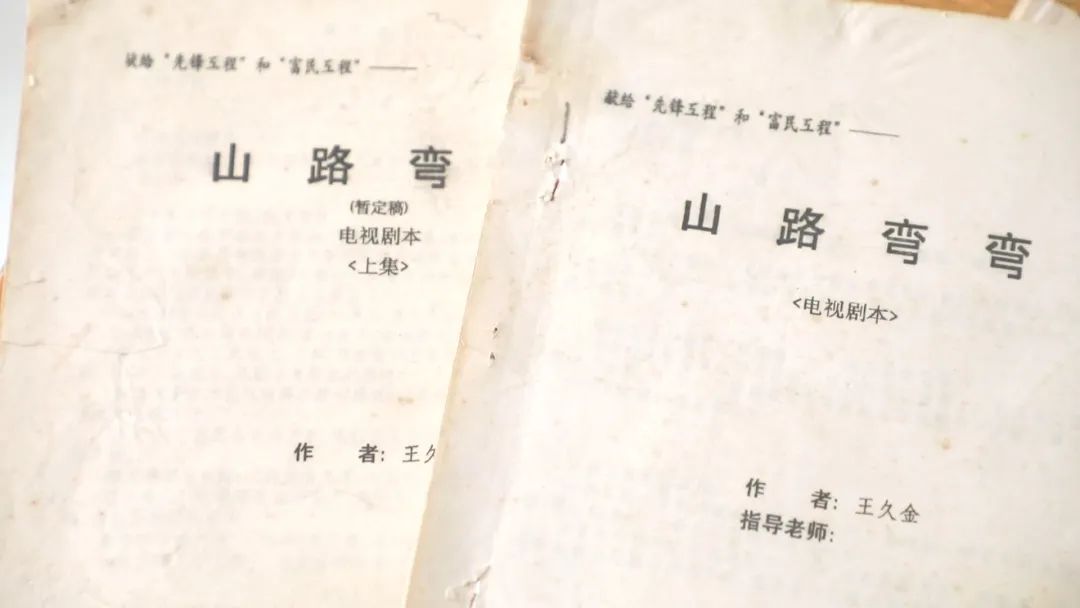 献给“先锋工程”和“富民工程”——
山 路 弯
(暂定稿)
电视剧本
<上集>
作 者: 王久
献给“先锋工程”和“富民工程”——
山 路 弯 弯
<电视剧本>
作 者: 王久金
指导老师: